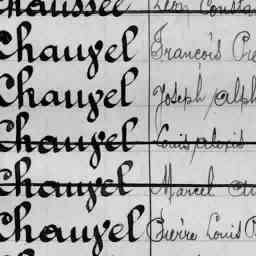 Chaussée Léon Consta
Chauvel François Pie
Chauvel Joseph Alph
Chauvel Louis Alexis
Chauvel Marcel
Chauvel Pierre Louis